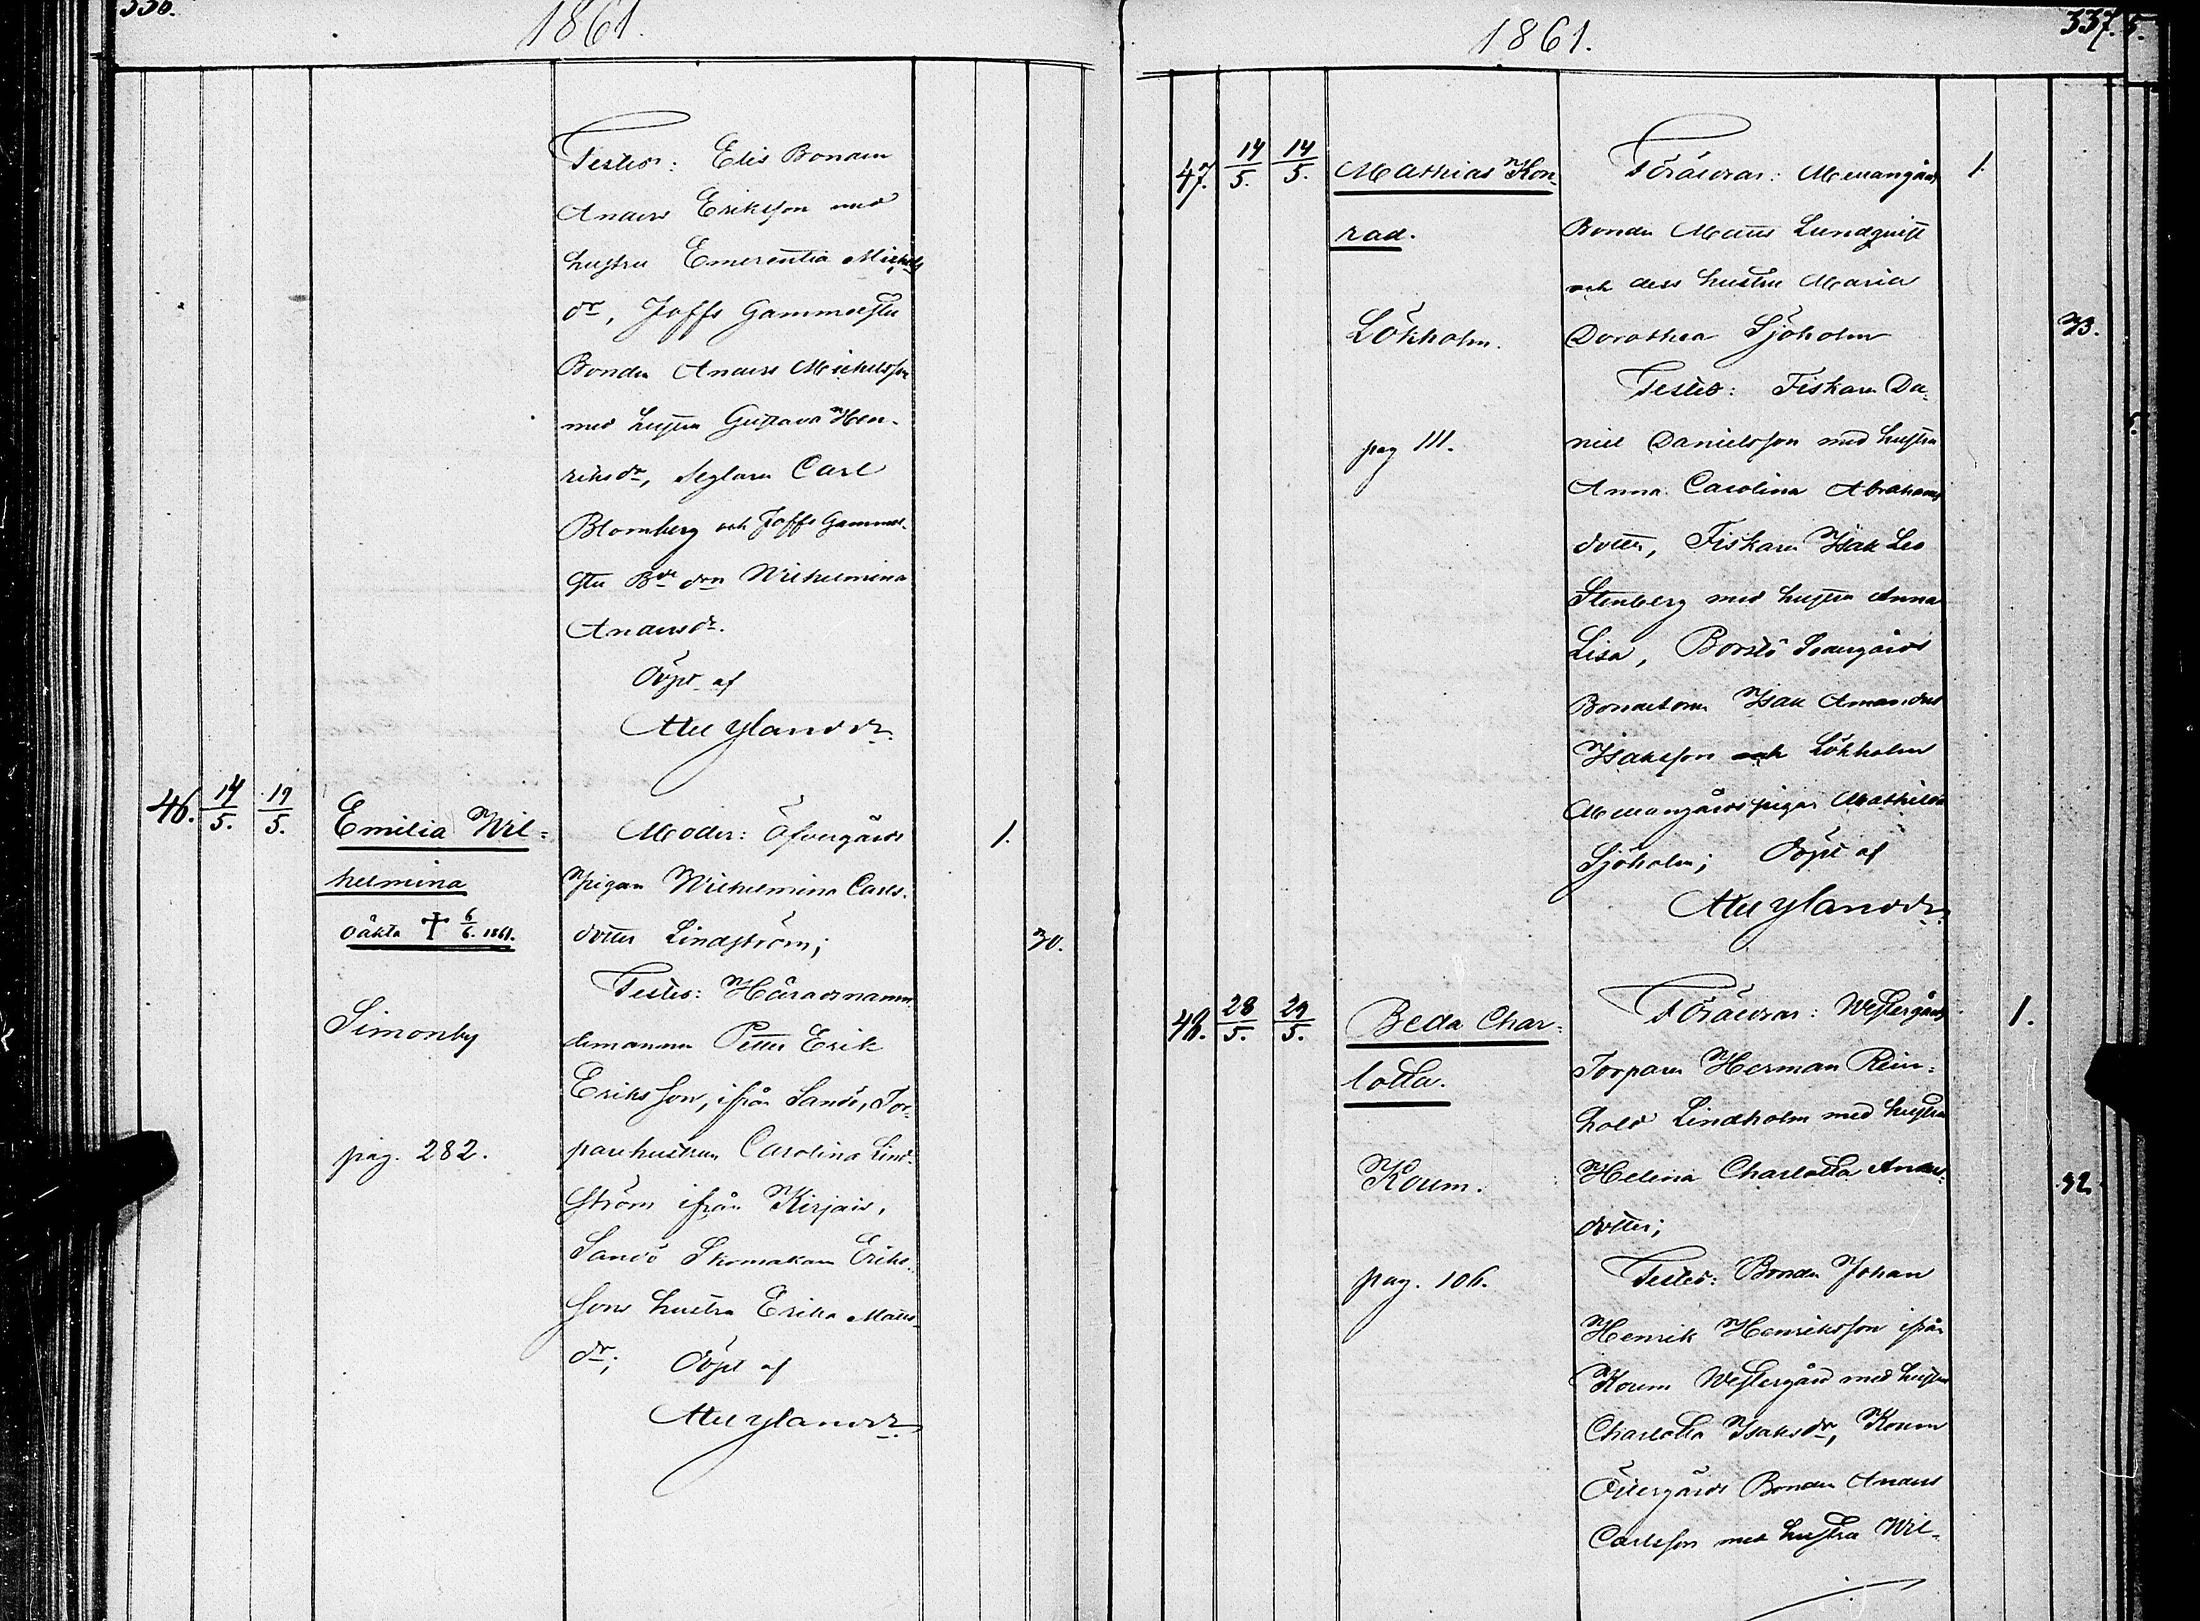 336.
1861.
Testes: Elis Bonden
Anders Eriksson med
hustru Emerentia Michels
dr, Joffs Gammelstu
Bonden Anders Michelsson
med hustru Gustava Hen-
riksdr, Seglaren Carl
Blomberg och Joffs Gammel-
stu Bde dren Wilhelmina
Andersdr.
Döpt af
Nylander
46. 14/5. 19/5.
Emilia Wil-
helmina
oäkta † 6/6. 1861.
Simonby
pag. 282.
Moder: Öfvergårds
pigan Wilhelmina Carls-
dotter Lindström;
1.
30.
Testes: Häradsnämn-
demannen Petter Erik
Eriksson, ifrån Sandö, Tor-
parehustrun Carolina Lind-
ström ifrån Kirjais,
Sandö Skomakaren Eriks-
sons hustru Erika Matts-
dr; Döpt af
Nylander
1861.
337.
5.
47. 14/5. 14/5.
Mathias Kon-
rad.
Lökholm.
pag 111.
Föräldrar: Mellangårds
1.
Bonden Matts Lundqvist
och dess hustru Maria
Dorothea Sjöholm
33.
Testes: Fiskaren Da-
niel Danielsson med hustru
Anna Carolina Abrahams
dotter, Fiskaren Isak Leo
Stenberg med hustru Anna
Lisa, Borstö Södergårds
Bondesonen Isak Amandus
Isaksson och Lökholm
Mellangårds pigan Mathilda
Sjöholm; Döpt af
Nylander
48. 28/5. 29/5.
Beda Char-
lotta.
Koum.
pag. 106.
Föräldrar: Westergårds
1.
Torparen Herman Rein-
hold Lindholm med hustru
Helena Charlotta Anders-
dotter;
32.
Testes: Bonden Johan
Henrik Henriksson ifrån
Koum Westergård med hustru
Charlotta Isaksdr, Koum
Östergårds Bonden Anders
Carlsson med hustru Wil-